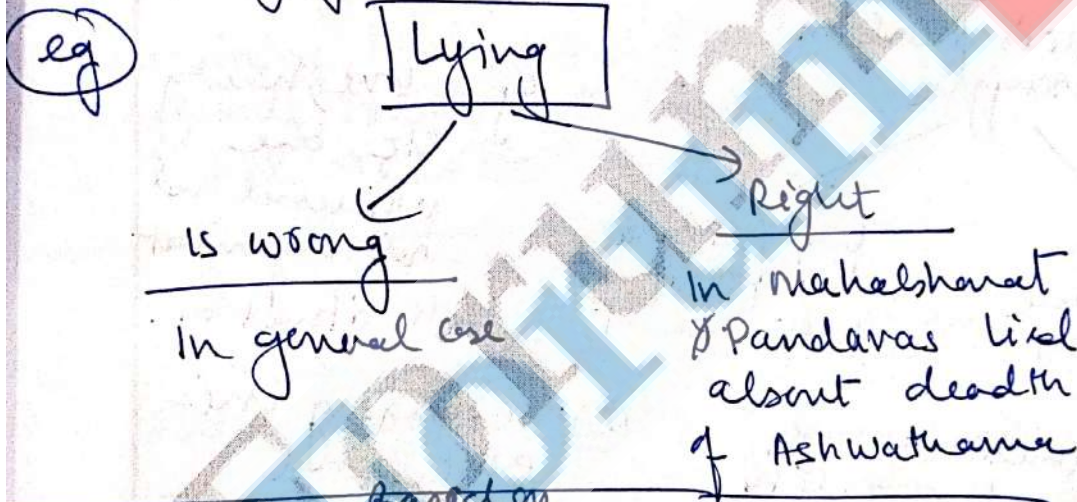 eg
Lying
is wrong
In general case
Right
In Mahabharat
Pandavas lied
about deadth
of Ashwathama
Based on